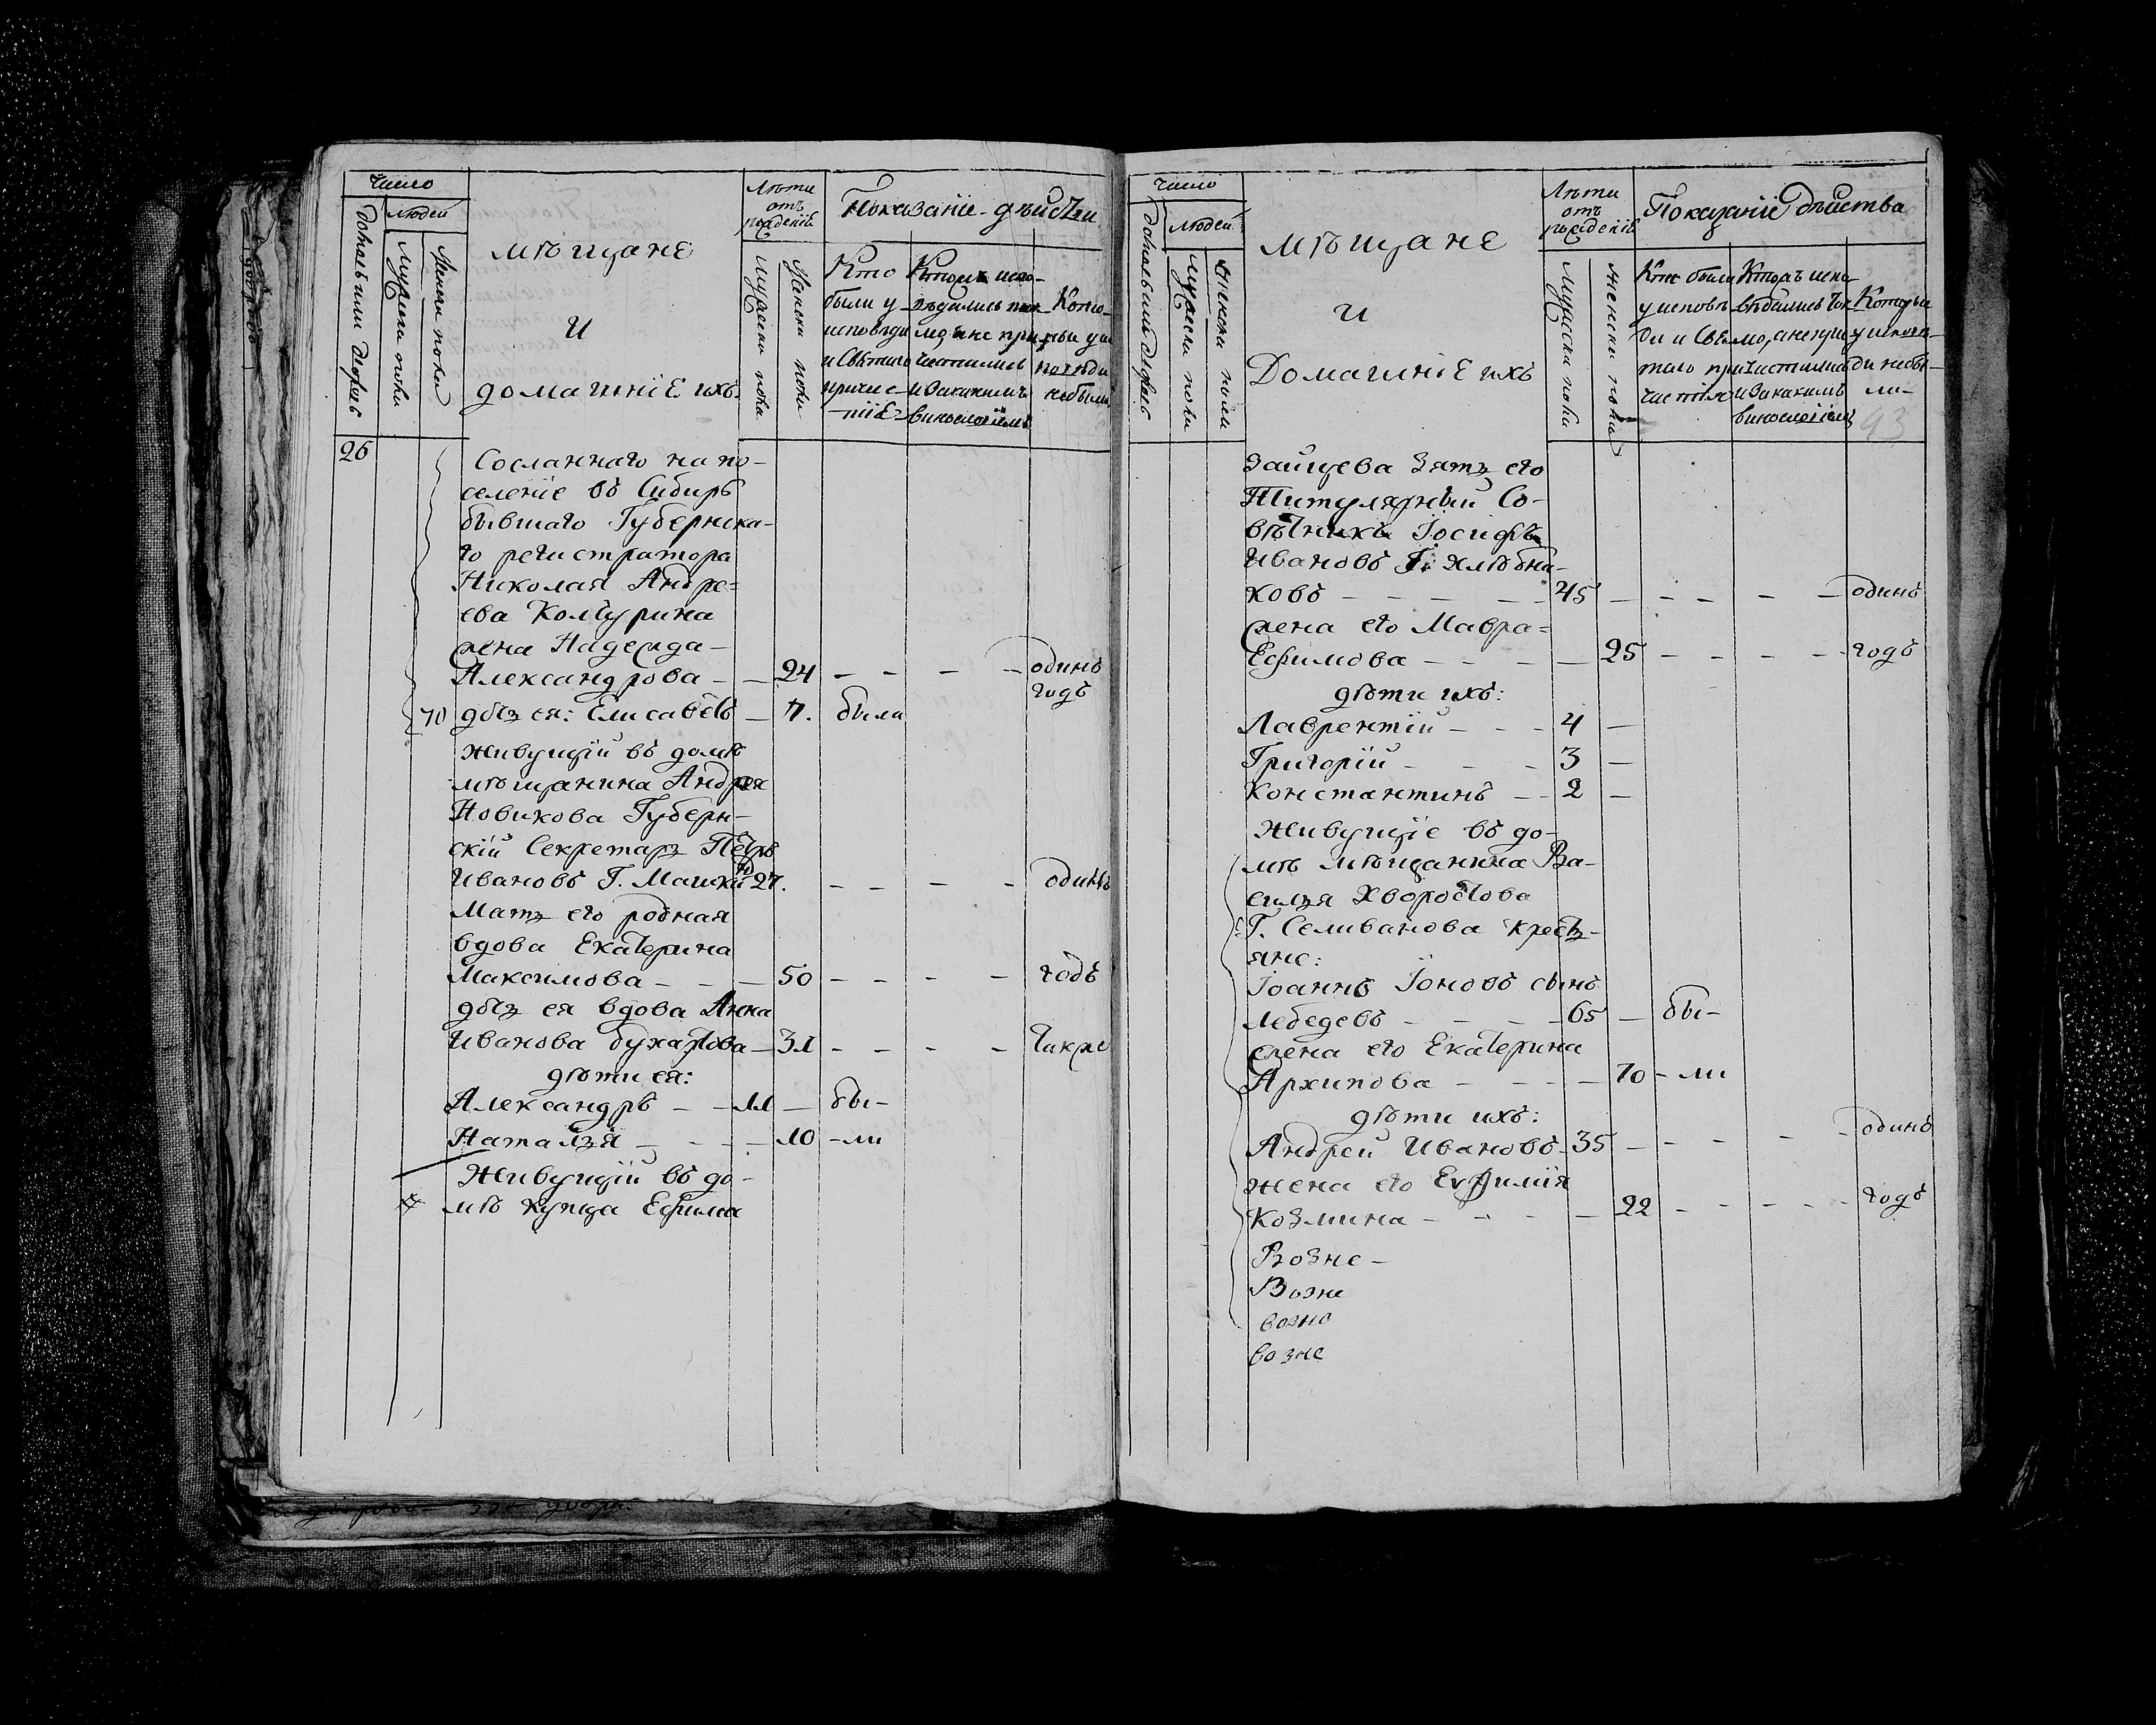 Число
Людей
мѣщане
и
домашніе ихъ
Лѣта
отъ
рожденія
Показаніе дѣйства
Мужеска пола
Женска пола
Кто
были у
исповѣди
и Святаго
причас-
тія
испо-
вѣдались
а не при-
частились
и за какимъ
винословіемъ
у ис-
повѣди
не были
26
Сосланнаго на по-
селеніе въ Сибирь
бывшаго Губернска-
го регистратора
Николая Андре-
ева
жена Надежда
Александрова - - 24 - - - - одинъ
годъ
70 дочь ея: Елисаветъ - 7. была
Живущій въ домѣ
мѣщанина Андрея
Новикова Губерн-
скій Секретарь Петръ
Ивановъ Г. 27. - - - - одинъ
Мать его родная
вдова Екатерина
Максимова - - - 50 - - - - годъ
дочь ея вдова Анна
Иванова - 31 - - - - также
дѣти ея:
Александръ - - 11 - бы-
Наталья - - - - 10 - ли
Живущій въ до-
мѣ купца Ефима
Число
Людей
мѣщане
и
Домашніе ихъ
Лѣта
отъ
рожденія
Показаніе дѣйства
Мужеска пола
Женска пола
Кто были
у исповѣ-
ди и Свя-
таго при-
частія
испо-
вѣдались
а не при-
частились
и за какимъ
винословіемъ
Которые
у исповѣ-
ди не бы-
ли
93
Зайцева Зять его
Титулярный Со-
вѣтникъ Іосифъ
Ивановъ Г. Хлѣбни-
ковъ - - - - - 45 - - - - - одинъ
жена его Мавра
Ефимова - - - - 25 - - - - годъ
дѣти ихъ:
Лаврентій - - - 4 -
Григорій - - - 3 -
Константинъ - - 2 -
Живущіе въ до-
мѣ мѣщанина Ва-
силья Хворостова
Г. Селиванова кресть-
яне:
Іоаннъ Іоновъ сынъ
Лебедевъ - - - - 65 - бы-
жена его Екатерина
Архипова - - - - 70 - ли
дѣти ихъ:
Андрей Ивановъ - 35 - - - - - одинъ
жена его Евфимія
Козмина - - - - 22 - - - - - годъ
Возне-
Возне
возно
возне